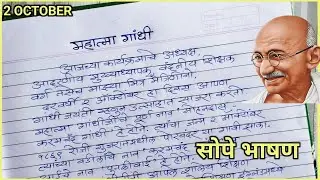 2 OCTOBER
महात्मा गांधी
आजच्या कार्यक्रमाचे अध्यक्ष,
आदरणीय मुख्याध्यापक, वंदनीय शिक्षक
वर्ग तसेच माझ्या मित्र मैत्रिणींनो,
दरवर्षी २ ऑक्टोबर हा दिवस आपण
गांधी जयंती म्हणून उत्साहात साजरा करतो
महात्मा गांधीजींचे पूर्ण नाव मोहनदास
करमचंद गांधी हे होते. त्यांचा जन्म २ ऑक्टोबर
१८६९ रोजी गुजरातमधील पोरबंदर या गावी झाला.
त्यांच्या वडिलांचे नाव करमचंद
नाव पुतळीबाई हे होते.
सोपे भाषण